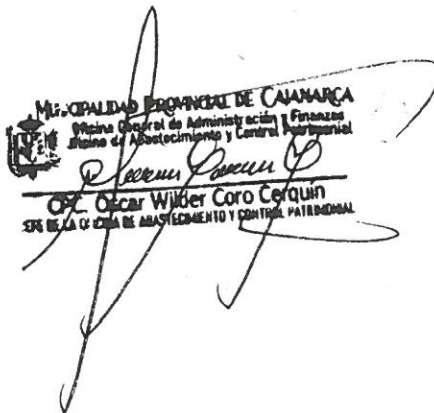 MUNICIPALIDAD PROVINCIAL DE CAJAMARCA
Oficina General de Administración y Finanzas
Oficina de Abastecimiento y Control Patrimonial
CPC. Oscar Wilder Coro Cerquín
JEFE DE LA OFICINA DE ABASTECIMIENTO Y CONTROL PATRIMONIAL